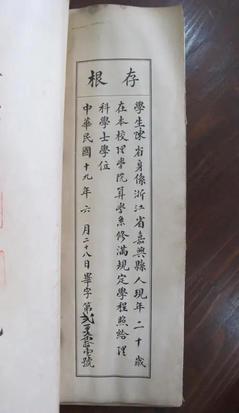 存根
學生陳省身係浙江省嘉興縣人現年二十歲
在本校理學院算學系修滿規定學程照給理
科學士學位
中華民國十九年六月二十八日畢字第 號